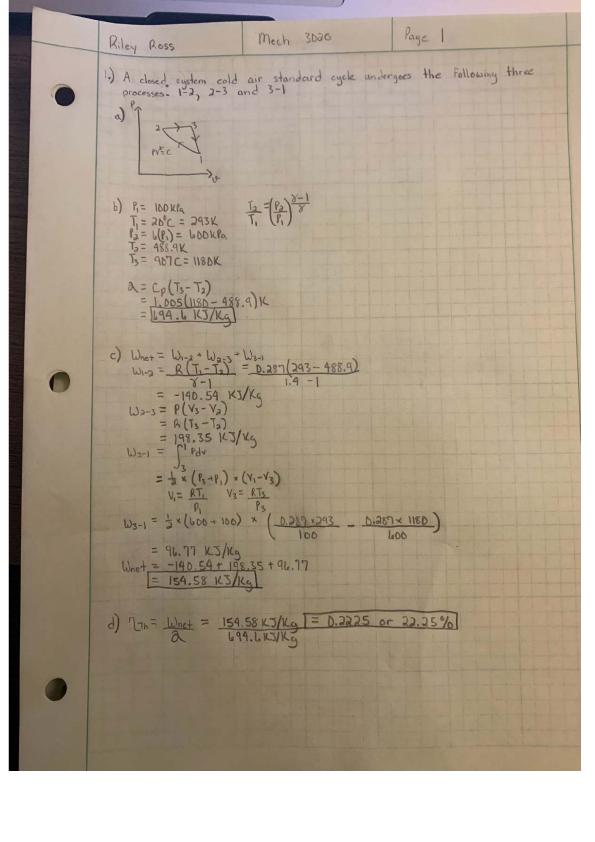 Riley Ross
Mech 3020
Page 1
1.) A closed system cold air standard cycle undergoes the following three
processes. 1-2, 2-3 and 3-1
a)
P
2 3
PVᵏ=C
1
v
b) P₁ = 100 kPa
T₂/T₁ = (P₂/P₁)^(γ-1)/γ
T₁ = 20°C = 293K
P₂ = 6(P₁) = 600kPa
T₂ = 488.9K
T₃ = 907C = 1180K
Q = Cp(T₃-T₂)
= 1.005(1180-488.9)K
= 694.6 KJ/Kg
c) Wnet = W₁₋₂ + W₂₋₃ + W₃₋₁
W₁₋₂ = R(T₁-T₂)/γ-1 = 0.287(293-488.9)/1.4-1
= -140.54 KJ/Kg
W₂₋₃ = P(V₃-V₂)
= R(T₃-T₂)
= 198.35 KJ/Kg
W₃₋₁ = ∫₃¹ Pdv
= ½ × (P₃+P₁) × (V₁-V₃)
V₁ = RT₁/P₁ V₃ = RT₃/P₃
W₃₋₁ = ½ × (600 + 100) × (0.287×293/100 - 0.287×1180/600)
= 96.77 KJ/Kg
Wnet = -140.54 + 198.35 + 96.77
= 154.58 KJ/Kg
d) ηTh = Wnet/Q = 154.58 KJ/Kg/694.6 KJ/Kg = 0.2225 or 22.25%